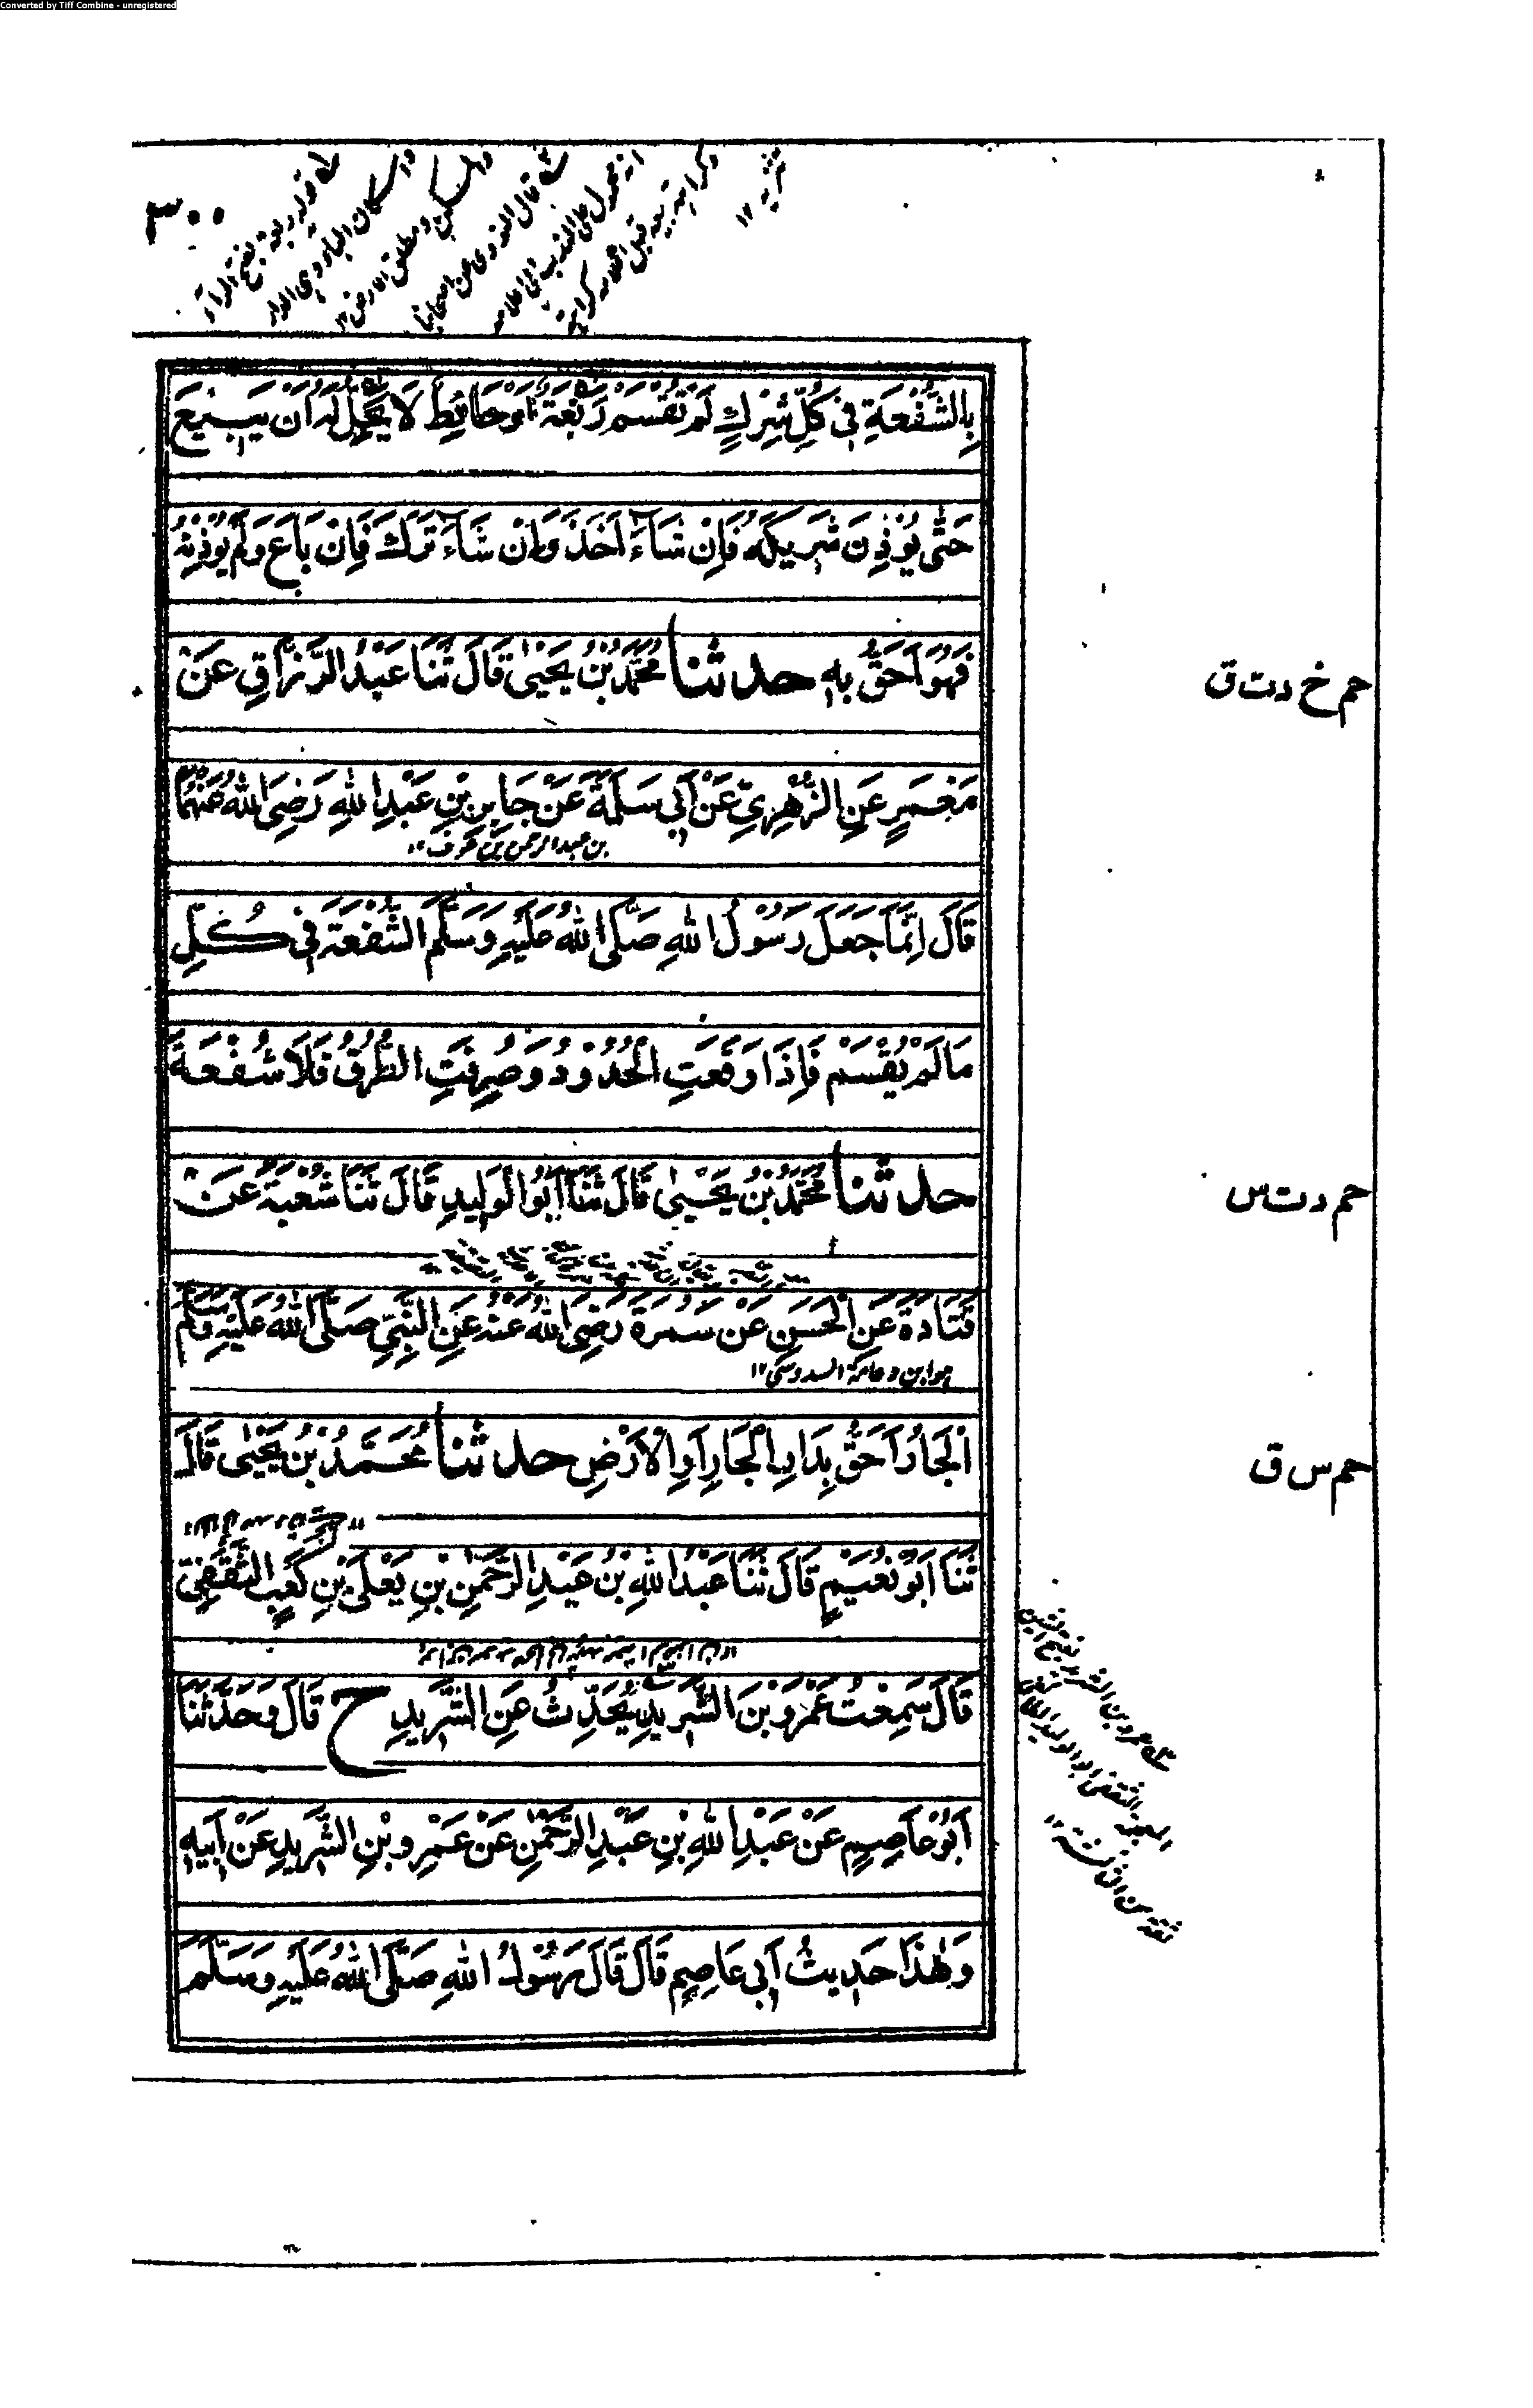 Converted by Tiff Combine - unregistered
٣٠٠
بِالشُّفْعَةِ فِي كُلِّ شِرْكٍ لَمْ تُقْسَمْ رَبْعَةٌ أَوْ حَائِطٌ لَا يَحِلُّ لَهُ أَنْ يَبِيْعَ
حَتّٰى يُؤْذِنَ شَرِيكَهُ فَإِنْ شَآءَ أَخَذَ وَإِنْ شَآءَ تَرَكَ فَإِنْ بَاعَ وَلَمْ يُؤْذِنْهُ
فَهُوَ أَحَقُّ بِهٖ حدثنا مُحَمَّدُ بْنُ يَحْيٰى قَالَ ثَنَا عَبْدُ الرَّزَّاقِ عَنْ
حم خ د ت ق
مَعْمَرٍ عَنِ الزُّهْرِيِّ عَنْ أَبِي سَلَمَةَ عَنْ جَابِرِ بْنِ عَبْدِ اللهِ رَضِيَ اللهُ عَنْهُمَا
بن عبد الرحمن بن عوف ١٢
قَالَ إِنَّمَا جَعَلَ رَسُوْلُ اللهِ صَلَّى اللهُ عَلَيْهِ وَسَلَّمَ الشُّفْعَةَ فِي كُلِّ
مَا لَمْ يُقْسَمْ فَإِذَا وَقَعَتِ الْحُدُوْدُ وَصُرِفَتِ الطُّرُقُ فَلَا شُفْعَةَ
حدثنا مُحَمَّدُ بْنُ يَحْيٰى قَالَ ثَنَا أَبُو الْوَلِيدِ قَالَ ثَنَا شُعْبَةُ عَنْ
حم د ت س
قَتَادَةَ عَنِ الْحَسَنِ عَنْ سَمُرَةَ رَضِيَ اللهُ عَنْهُ عَنِ النَّبِيِّ صَلَّى اللهُ عَلَيْهِ وَسَلَّمَ
هو ابن دعامة السدوسي ١٢
اَلْجَارُ أَحَقُّ بِدَارِ الْجَارِ أَوِ الْأَرْضِ حدثنا مُحَمَّدُ بْنُ يَحْيٰى قَالَ
حم س ق
ثَنَا أَبُوْ نُعَيْمٍ قَالَ ثَنَا عَبْدُ اللهِ بْنُ عَبْدِ الرَّحْمٰنِ بْنِ يَعْلَى بْنِ كَعْبٍ الثَّقَفِيُّ
قَالَ سَمِعْتُ عَمْرَو بْنَ الشَّرِيدِ يُحَدِّثُ عَنِ الشَّرِيدِ ح قَالَ وَحَدَّثَنَا
أَبُوْ عَاصِمٍ عَنْ عَبْدِ اللهِ بْنِ عَبْدِ الرَّحْمٰنِ عَنْ عَمْرِو بْنِ الشَّرِيدِ عَنْ أَبِيهِ
وَهٰذَا حَدِيثُ أَبِي عَاصِمٍ قَالَ قَالَ رَسُوْلُ اللهِ صَلَّى اللهُ عَلَيْهِ وَسَلَّمَ